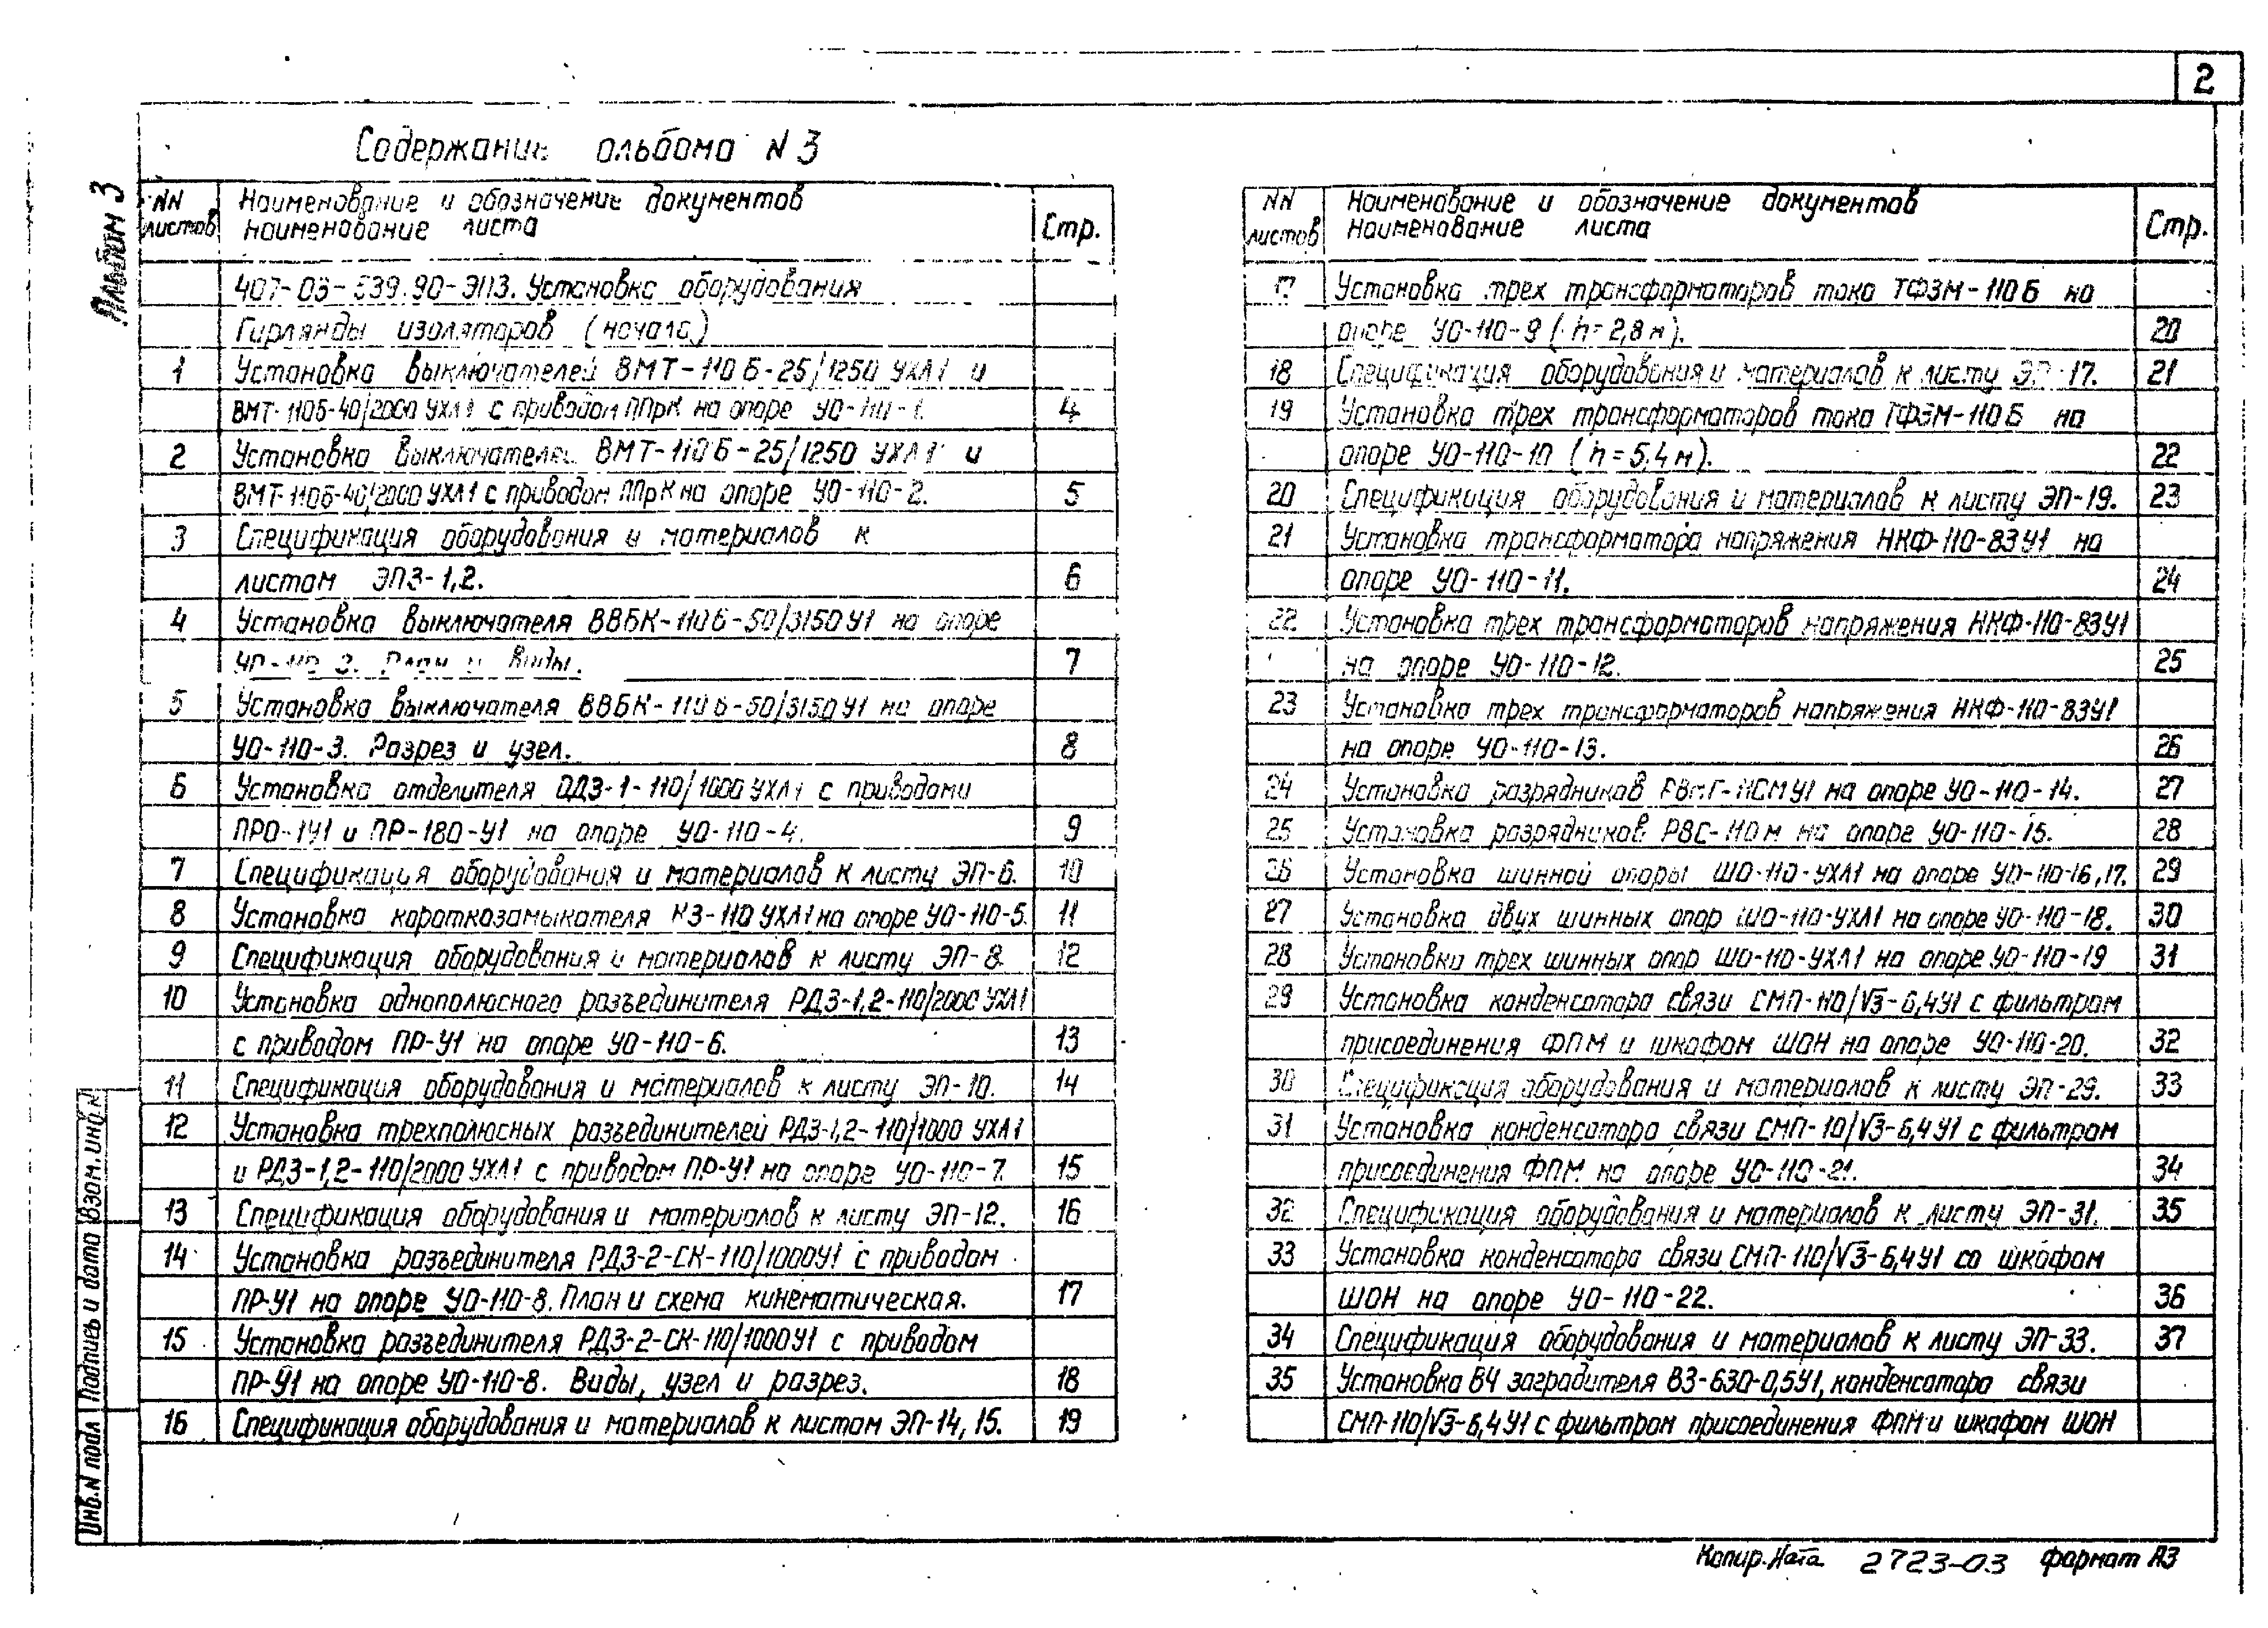 2
Содержание альбома N 3
Альбом 3
NN листов
Наименование и обозначение документов
наименование листа
Стр.
407-03-539.90-ЭП3. Установка оборудования
Гирлянды изоляторов (начало)
1 Установка выключателей ВМТ-110Б-25/1250 УХЛ1 и
ВМТ-110Б-40/2000 УХЛ1 с приводом ППрК на опоре УО-110-1. 4
2 Установка выключателей ВМТ-110Б-25/1250 УХЛ1 и
ВМТ-110Б-40/2000 УХЛ1 с приводом ППрК на опоре УО-110-2. 5
3 Спецификация оборудования и материалов к
листам ЭП3-1,2. 6
4 Установка выключателя ВВБК-110Б-50/3150У1 на опоре
УО-110-3. План и виды. 7
5 Установка выключателя ВВБК-110Б-50/3150У1 на опоре
УО-110-3. Разрез и узел. 8
6 Установка отделителя ОДЗ-1-110/1000 УХЛ1 с приводами
ПРО-1У1 и ПР-180-У1 на опоре УО-110-4. 9
7 Спецификация оборудования и материалов к листу ЭП-6. 10
8 Установка короткозамыкателя КЗ-110 УХЛ1 на опоре УО-110-5. 11
9 Спецификация оборудования и материалов к листу ЭП-8. 12
10 Установка однополюсного разъединителя РДЗ-1,2-110/2000 УХЛ1
с приводом ПР-У1 на опоре УО-110-6. 13
11 Спецификация оборудования и материалов к листу ЭП-10. 14
12 Установка трехполюсных разъединителей РДЗ-1,2-110/1000 УХЛ1
и РДЗ-1,2-110/2000 УХЛ1 с приводом ПР-У1 на опоре УО-110-7. 15
13 Спецификация оборудования и материалов к листу ЭП-12. 16
14 Установка разъединителя РДЗ-2-СК-110/1000У1 с приводом
ПР-У1 на опоре УО-110-8. План и схема кинематическая. 17
15 Установка разъединителя РДЗ-2-СК-110/1000У1 с приводом
ПР-У1 на опоре УО-110-8. Виды, узел и разрез. 18
16 Спецификация оборудования и материалов к листам ЭП-14, 15. 19
NN листов
Наименование и обозначение документов
наименование листа
Стр.
17 Установка трех трансформаторов тока ТФЗМ-110Б на
опоре УО-110-9 (h=2,8м). 20
18 Спецификация оборудования и материалов к листу ЭП-17. 21
19 Установка трех трансформаторов тока ТФЗМ-110Б на
опоре УО-110-10 (h=5,4м). 22
20 Спецификация оборудования и материалов к листу ЭП-19. 23
21 Установка трансформатора напряжения НКФ-110-83У1 на
опоре УО-110-11. 24
22 Установка трех трансформаторов напряжения НКФ-110-83У1
на опоре УО-110-12. 25
23 Установка трех трансформаторов напряжения НКФ-110-83У1
на опоре УО-110-13. 26
24 Установка разрядников РВМГ-110МУ1 на опоре УО-110-14. 27
25 Установка разрядников РВС-110м на опоре УО-110-15. 28
26 Установка шинной опоры ШО-110-УХЛ1 на опоре УО-110-16,17. 29
27 Установка двух шинных опор ШО-110-УХЛ1 на опоре УО-110-18. 30
28 Установка трех шинных опор ШО-110-УХЛ1 на опоре УО-110-19 31
29 Установка конденсатора связи СМП-110/√3-6,4У1 с фильтром
присоединения ФПМ и шкафом ШОН на опоре УО-110-20. 32
30 Спецификация оборудования и материалов к листу ЭП-29. 33
31 Установка конденсатора связи СМП-10/√3-6,4У1 с фильтром
присоединения ФПМ на опоре УО-110-21. 34
32 Спецификация оборудования и материалов к листу ЭП-31. 35
33 Установка конденсатора связи СМП-110/√3-6,4У1 со шкафом
ШОН на опоре УО-110-22. 36
34 Спецификация оборудования и материалов к листу ЭП-33. 37
35 Установка ВЧ заградителя ВЗ-630-0,5У1, конденсатора связи
СМП-110/√3-6,4У1 с фильтром присоединения ФПМ и шкафом ШОН
Инв.N подл Подпись и дата Взам.инв.N
Копир.Ната 2723-03 формат А3